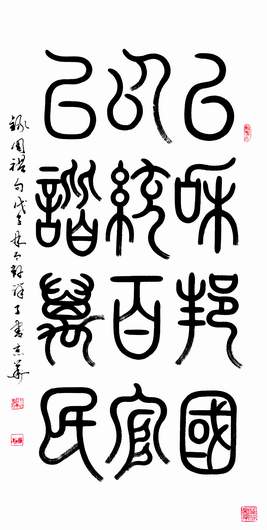 以和邦國
以統百官
以諧萬民
錄周禮句戊子書京華